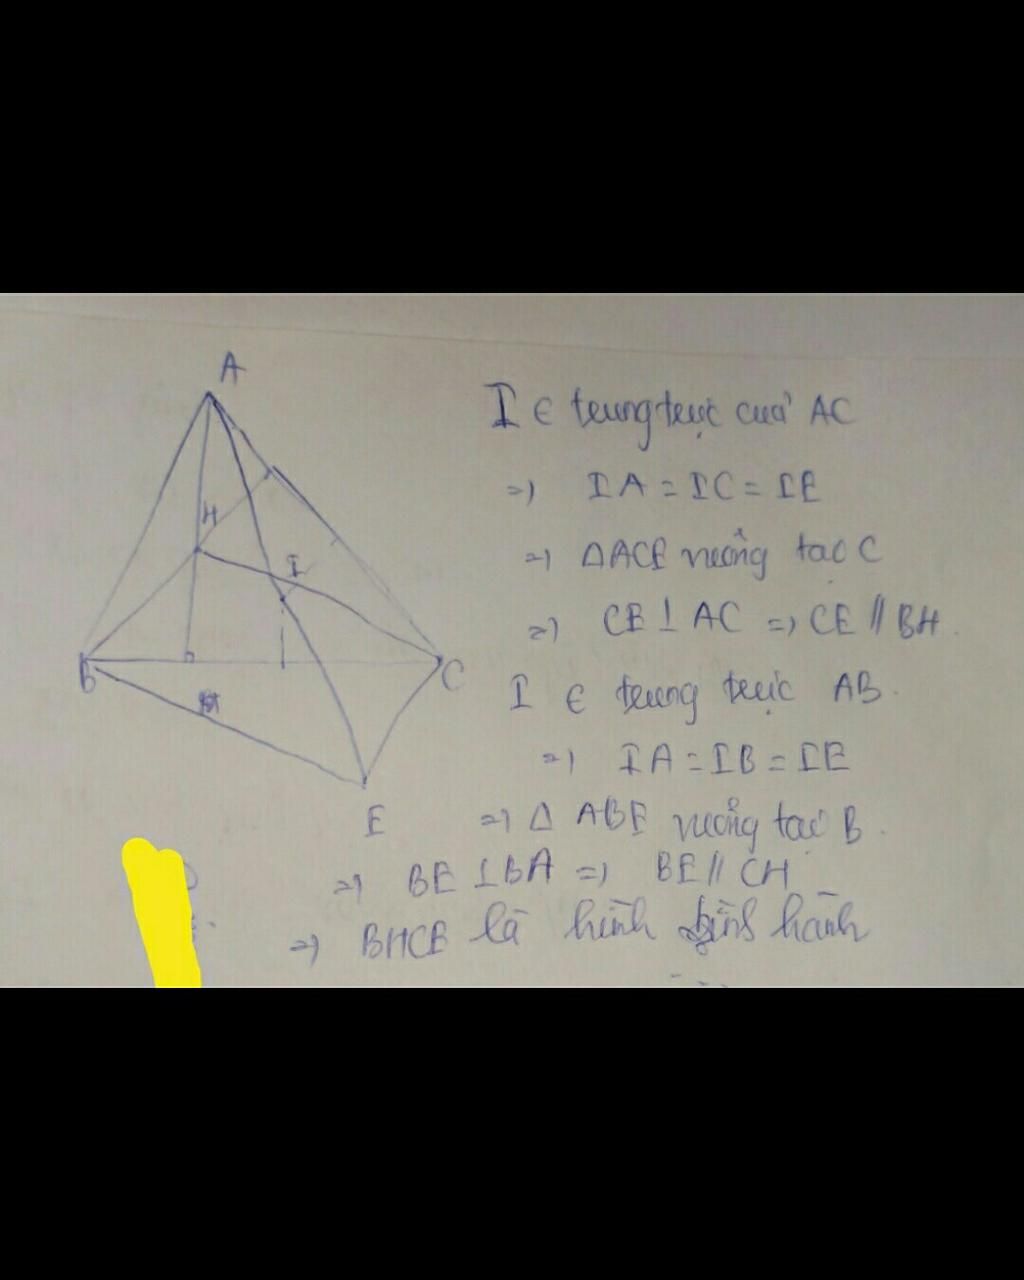 A
H
I
B
C
E
I ∈ trung trực của AC
=> IA = IC = IE
=> ΔACE vuông tại C
=> CE ⊥ AC => CE // BH.
I ∈ trung trực AB.
=> IA = IB = IE
=> Δ ABE vuông tại B.
=> BE ⊥ BA => BE // CH
=> BHCE là hình bình hành